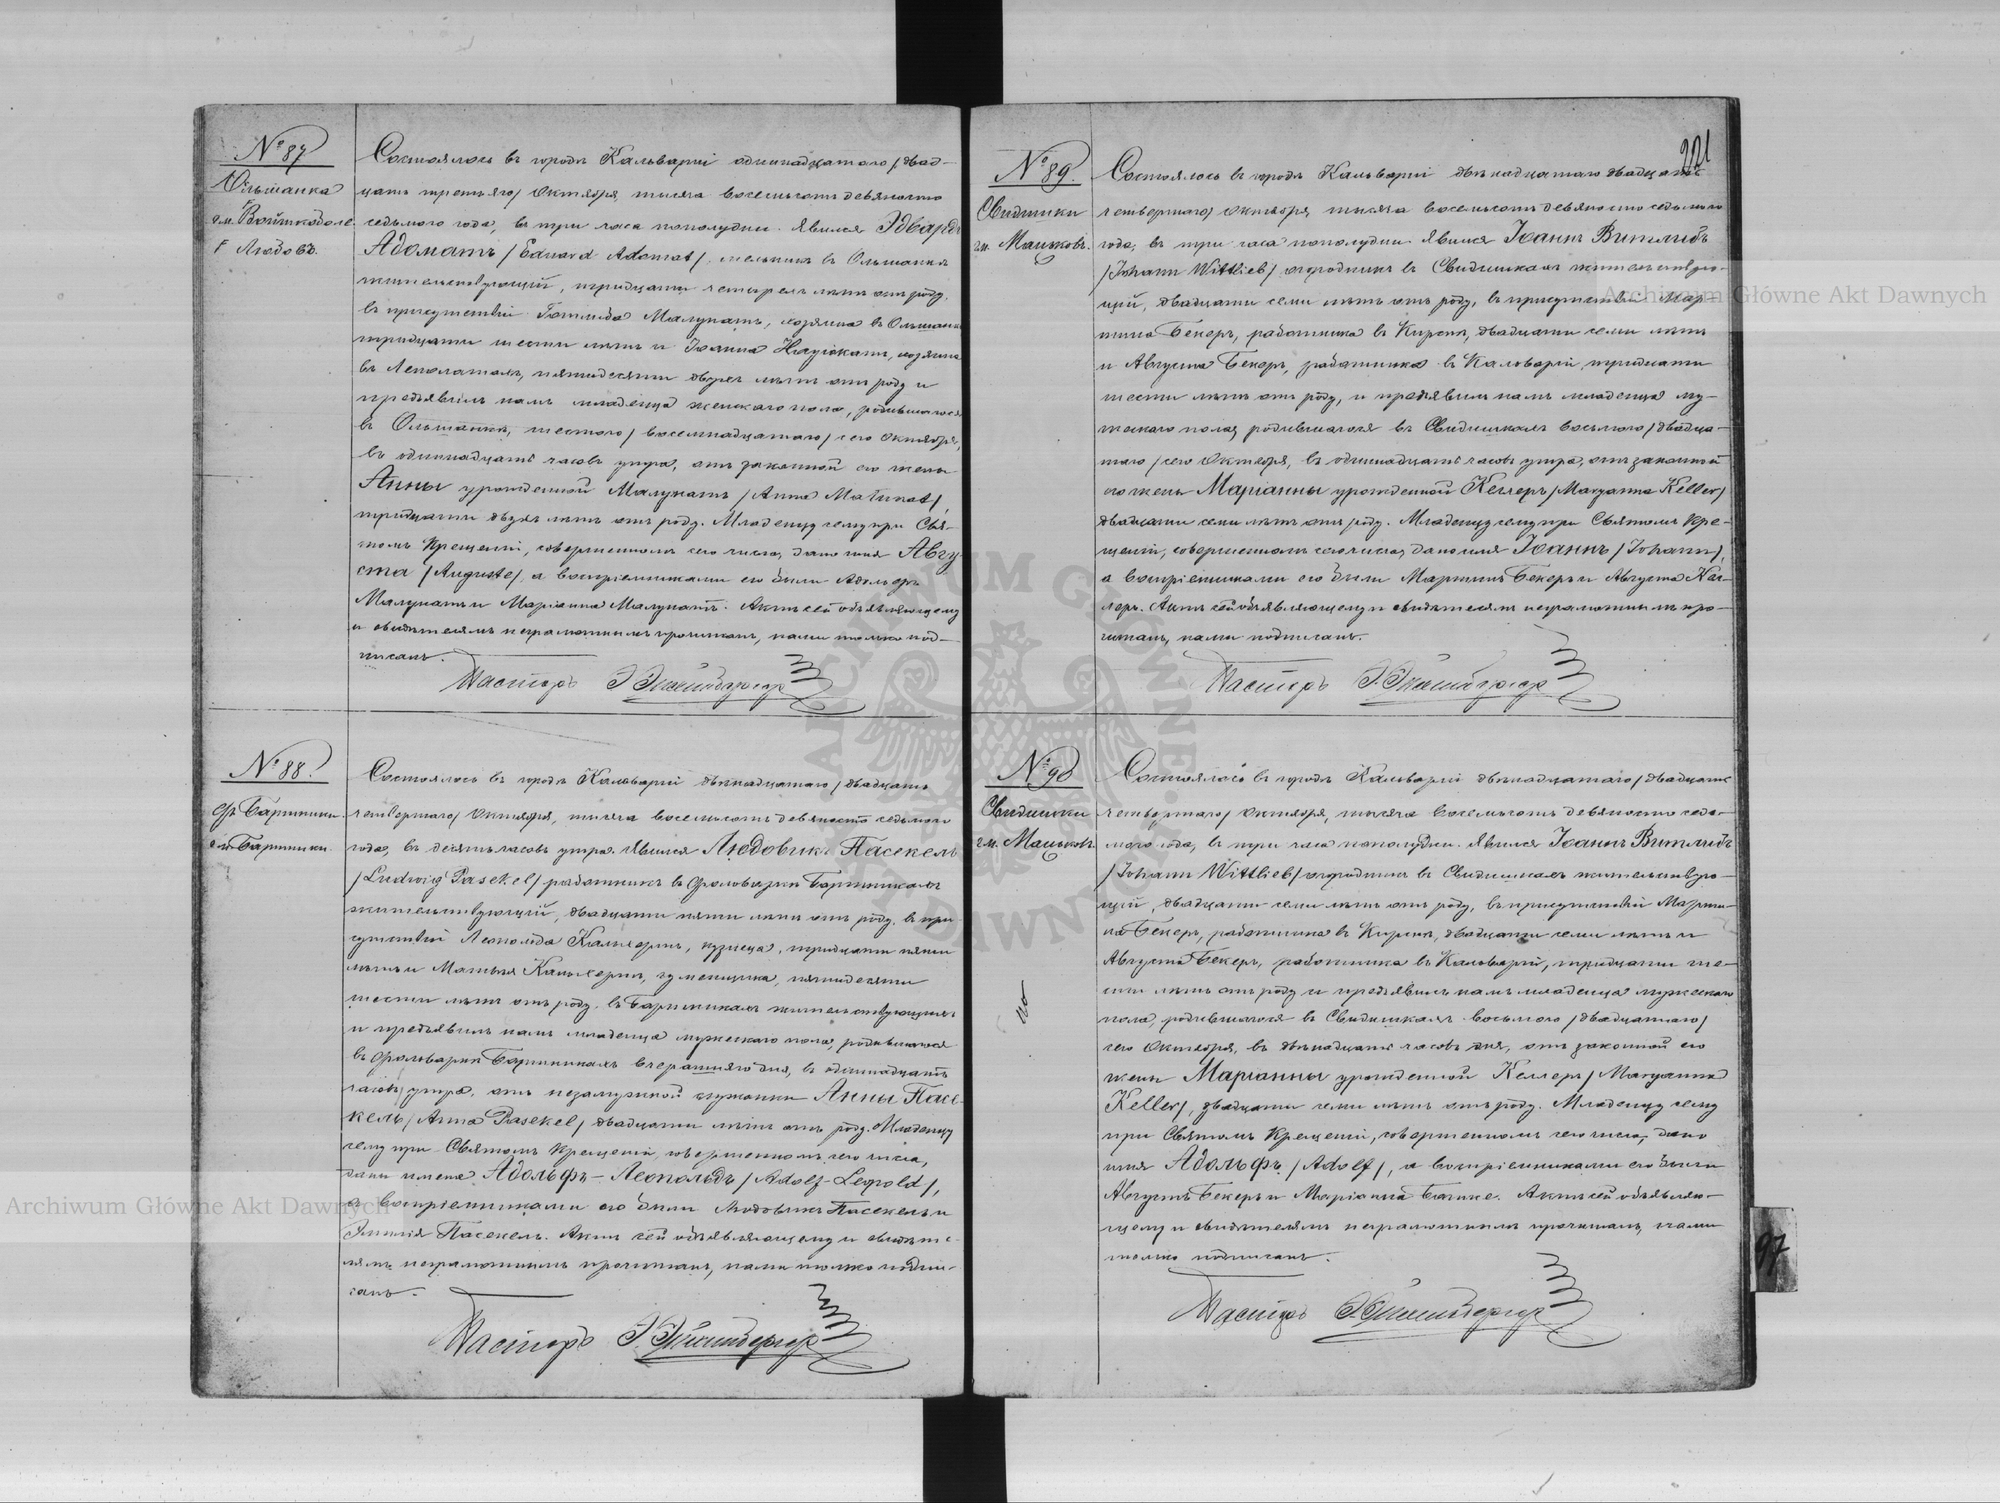 № 87
Ольшанка
гм. Войткоболе
г Людовъ.
Состоялось въ городѣ Кальваріи одиннадцатаго /двад-
цать третьяго/ Октября тысяча восемьсотъ девяносто
седьмого года, въ три часа пополудни. Явился Эдвардъ
Адоматъ /Eduard Adomat/, мельникъ въ Ольшанкѣ
жительствующій, тридцати четырехъ лѣтъ отъ роду,
въ присутствіи Готлиба Малунатъ, хозяина въ Ольшанкѣ
тридцати шести лѣтъ и Іоанна, хозяина
въ, пятидесяти двухъ лѣтъ отъ роду и
предъявилъ намъ младенца женскаго пола, родившагося
въ Ольшанкѣ, шестого /восемнадцатаго/ сего Октября,
въ одиннадцать часовъ утра, отъ законной его жены
Анны урожденной Малунатъ /Anna Malunat/,
тридцати двухъ лѣтъ отъ роду. Младенцу сему при Свя-
томъ Крещеніи, совершенномъ сего числа, дано имя Авгу
ста /Auguste/, а воспріемниками его были Адольфъ
Малунатъ и Маріанна Малунатъ. Актъ сей объявляющему
и свидѣтелямъ неграмотнымъ прочитанъ, нами только под-
писанъ.
Пасторъ
№ 88.
Ф. Бартники
гм. Бартники.
Состоялось въ городѣ Кальваріи двѣнадцатаго /двадцать
четвертаго/ Октября, тысяча восемьсотъ девяносто седьмого
года, въ десять часовъ утра. Явился Людовикъ Пасекель
/Ludwig Pasekel/ работникъ въ Фольваркѣ Бартникахъ
жительствующій, двадцати пяти лѣтъ отъ роду, въ при
сутствіи Леопольда, кузнеца, тридцати пяти
лѣтъ и Матвѣя, пятидесяти
шести лѣтъ отъ роду, въ Бартникахъ жительствующихъ
и предъявилъ намъ младенца мужескаго пола, родившагося
въ Фольваркѣ Бартникахъ вчерашняго дня, въ одиннадцать
часовъ утра, отъ незамужной служанки Анны Пасе-
кель /Anna Pasekel/ двадцати лѣтъ отъ роду. Младенцу
сему при Святомъ Крещеніи, совершенномъ сего числа,
даны имена Адольфъ-Леопольдъ /Adolf-Leopold/,
а воспріемниками его были Людовикъ Пасекель и
Эмилія Пасекель. Актъ сей объявляющему и свидѣте-
лямъ неграмотнымъ прочитанъ, нами только подпи-
санъ.
Пасторъ
221
№ 89.
Свидишки
гм. Маньковъ.
Состоялось въ городѣ Кальваріи двѣнадцатаго двадцать
четвертаго/ Октября, тысяча восемьсотъ девяносто седьмого
года, въ три часа пополудни. Явился Іоаннъ Витлибъ
/Johann Wittlieb/ огородникъ въ Свидишкахъ жительствую-
щій, двадцати семи лѣтъ отъ роду, въ присутствіи Мар-
тина Бекеръ, работника въ, двадцати семи лѣтъ
и Августа Бекеръ, работника въ Кальваріи, тридцати
шести лѣтъ отъ роду, и предъявилъ намъ младенца му-
жескаго пола, родившагося въ Свидишкахъ восьмого /двадца-
таго/ сего Октября, въ одиннадцать часовъ утра, отъ законной
его жены Маріанны урожденной Келлеръ /Maryanna Keller/
двадцати семи лѣтъ отъ роду. Младенцу сему при Святомъ Кре-
щеніи, совершенномъ сего числа, дано имя Іоаннъ /Johann/,
а воспріемниками его были Мартинъ Бекеръ и Августа Кел-
леръ. Актъ сей объявляющему и свидѣтелямъ неграмотнымъ про-
читанъ, нами подписанъ.
Пасторъ
№ 90
Свидишки
гм. Маньковъ.
Состоялось въ городѣ Кальваріи двѣнадцатаго /двадцать
четвертаго/ Октября, тысяча восемьсотъ девяносто седь-
мого года, въ три часа пополудни. Явился Іоаннъ Витлибъ
/Johann Wittlieb/ огородникъ въ Свидишкахъ жительствую-
щій, двадцати семи лѣтъ отъ роду, въ присутствіи Марти-
на Бекеръ, работника въ, двадцати семи лѣтъ и
Августа Бекеръ, работника въ Кальваріи, тридцати ше-
сти лѣтъ отъ роду и предъявилъ намъ младенца мужескаго
пола, родившагося въ Свидишкахъ восьмого /двадцатаго/
сего Октября, въ двѣнадцать часовъ дня, отъ законной его
жены Маріанны урожденной Келлеръ /Maryanna
Keller/, двадцати семи лѣтъ отъ роду. Младенцу сему
при Святомъ Крещеніи, совершенномъ сего числа, дано
имя Адольфъ /Adolf/, а воспріемниками его были
Августъ Бекеръ и Маріанна. Актъ сей объявляю-
щему и свидѣтелямъ неграмотнымъ прочитанъ, нами
только подписанъ.
Пасторъ
97
Archiwum Główne Akt Dawnych
Archiwum Główne Akt Dawnych
ARCHIWUM GŁÓWNE AKT DAWNYCH